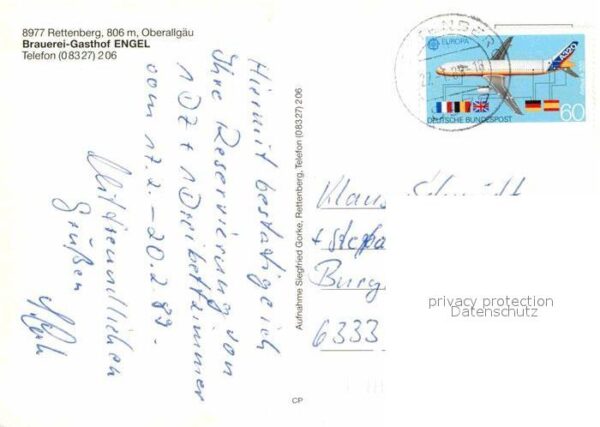 8977 Rettenberg, 806 m, Oberallgäu
Brauerei-Gasthof ENGEL
Telefon (0 83 27) 2 06
Hiermit bestätige ich
Ihre Reservierung von
1 DZ + 1 Dreibettzimmer
vom 17.2.–20.2.89.
Mit freundlichen
Grüßen
Aufnahme Siegfried Gorke, Rettenberg, Telefon (0 83 27) 2 06
CP
EUROPA
A320
60
DEUTSCHE BUNDESPOST
Klaus
+
Burg
6333
privacy protection
Datenschutz